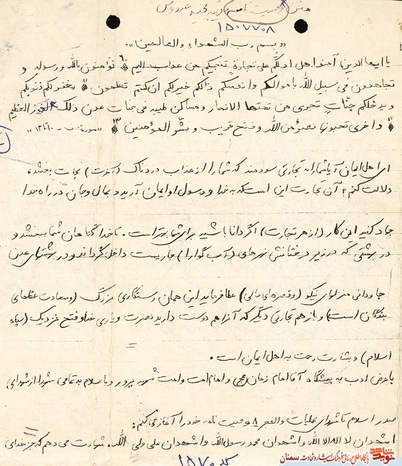 ۱۵۰۷۷۰۸
«بسم رب الشهداء والصالحین»
یا ایها الذین آمنوا هل ادلکم علی تجارة تنجیکم من عذاب الیم تؤمنون بالله ورسوله و
تجاهدون فی سبیل الله باموالکم وانفسکم ذالکم خیرلکم ان کنتم تعلمون یغفر لکم ذنوبکم
ویدخلکم جنات تجری من تحتها الانهار ومساکن طیبه فی جنات عدن ذلک الفوز العظیم
و اخری تحبونها نصر من الله و فتح قریب و بشر المؤمنین
ای اهل ایمان آیا شما را به تجارتی سودمند که شما را از عذاب دردناک (آخرت) نجات بخشد،
دلالت کنم؟ آن تجارت این است که به خدا و رسول او ایمان آرید و بمال و جان در راه خدا
جهاد کنید این کار (از هر تجارت) اگر دانا باشید برای شما بهتر است. تا خدا گناهان شما ببخشد و
در بهشتی که در زیر درختانش نهرهای (آب گوارا) جاریست داخل گرداند و در بهشتهای عدن
جاودانی منزلهای نیکو عطا فرماید این همان رستگاری بزرگ (و سعادت عظمای
بندگان است) و باز هم تجارتی دیگر که آنرا هم دوست دارید نصرت و یاری خدا و فتح نزدیک (سپاه
اسلام) و بشارت رحمت به اهل ایمان است.
با عرض ادب به پیشگاه آقا امام زمان و امام امت و امت شهید پرور و با سلام به تمامی شهدا از شهدای
صدر اسلام تا شهدای عملیات والفجر ۸ وصیت نامه خود را آغاز می کنم:
اشهد ان لا اله الا الله و اشهد ان محمد رسول الله و اشهد ان علی ولی الله. شهادت می دهم که جز خدای
۱۵۷۰
نوید شاهد